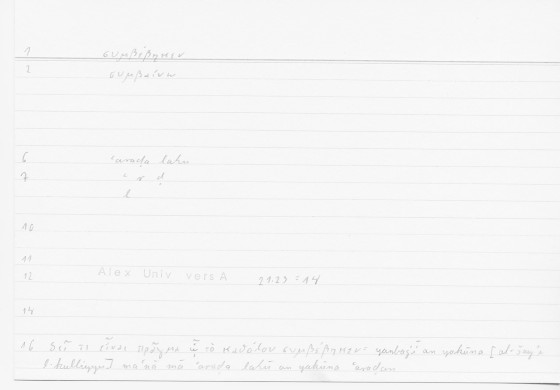 1 συμβέβηκεν
2 συμβαίνω
6 ʿaraḍa lahu
7 ʿ r ḍ
l
10
11
12 Alex Univ vers A 21.23 = 14
14
16 δεῖ τι εἶναι πρᾶγμα ᾧ τὸ καθόλου συμβέβηκεν· yanbaġī an yakūna [al-šayʾu
l-kulliyyu] maʿnā mā ʿaraḍa lahū an yakūna ʿaraḍan